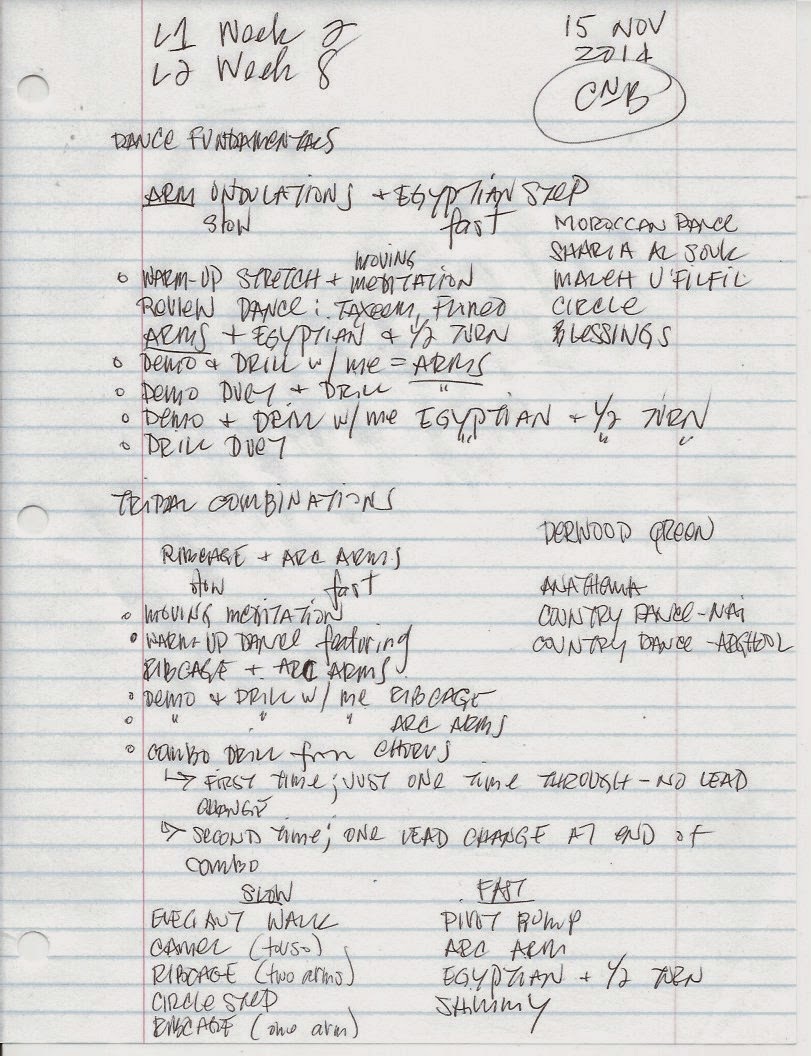 L1 Week 2
L2 Week 8
15 NOV
2014
CNB
DANCE FUNDAMENTALS
ARM UNDULATIONS + EGYPTIAN STEP
slow fast
MOROCCAN DANCE
SHARIA AL SOUK
MALEH U'FILFIL
CIRCLE
BLESSINGS
moving
• WARM-UP STRETCH + MEDITATION
REVIEW DANCE: TAXEEM, FUNED
ARMS + EGYPTIAN + 1/2 TURN
• DEMO + DRILL w/ me = ARMS
• DEMO DUET + DRILL "
• DEMO + DRILL w/me EGYPTIAN + 1/2 TURN
• DRILL DUET " " "
TRIBAL COMBINATIONS
DERWOOD GREEN
RIBCAGE + ARC ARMS
slow fast
ANATHEMA
COUNTRY DANCE-NAI
COUNTRY DANCE-ARGHOOL
• MOVING MEDITATION
• WARM-UP DANCE featuring
RIBCAGE + ARC ARMS
• DEMO + DRILL w/ me RIBCAGE
• " " " ARC ARMS
• COMBO DRILL from CHORUS
↳ FIRST time; JUST ONE time THROUGH - NO LEAD
CHANGE
↳ SECOND time; ONE LEAD CHANGE AT END of
COMBO
SLOW
ELEGANT WALK
CAMEL (torso)
RIBCAGE (two arms)
CIRCLE STEP
RIBCAGE (one arm)
FAST
PIVOT BUMP
ARC ARM
EGYPTIAN + 1/2 TURN
SHIMMY